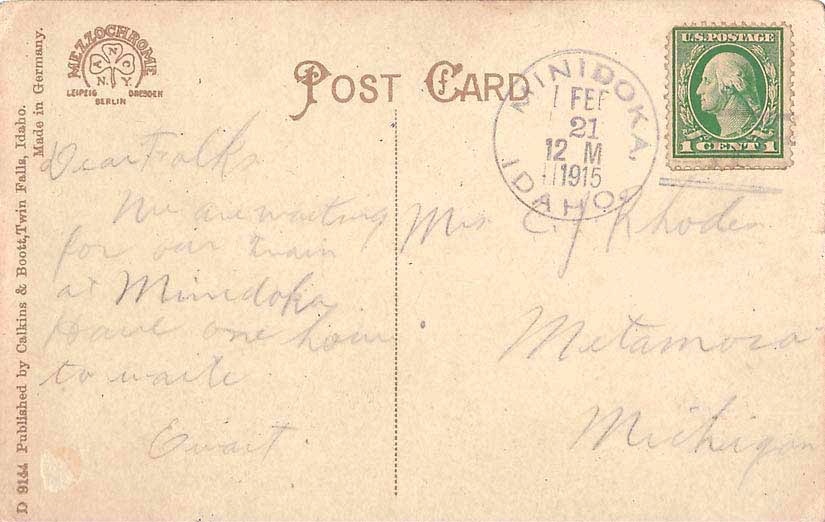 MEZZOCHROME
A N C
N. Y.
LEIPZIG DRESDEN
BERLIN
POST CARD
MINIDOKA,
IDAHO.
FEB
21
12 M
1915
U.S. POSTAGE
1 CENT 1
Dear Folks
We are waiting
for our train
at Minidoka
Have one hour
to waite
Ewart
Mrs C. J Rhodes
Metamora
Michigan
D 9144 Published by Calkins & Boott, Twin Falls, Idaho.
Made in Germany.